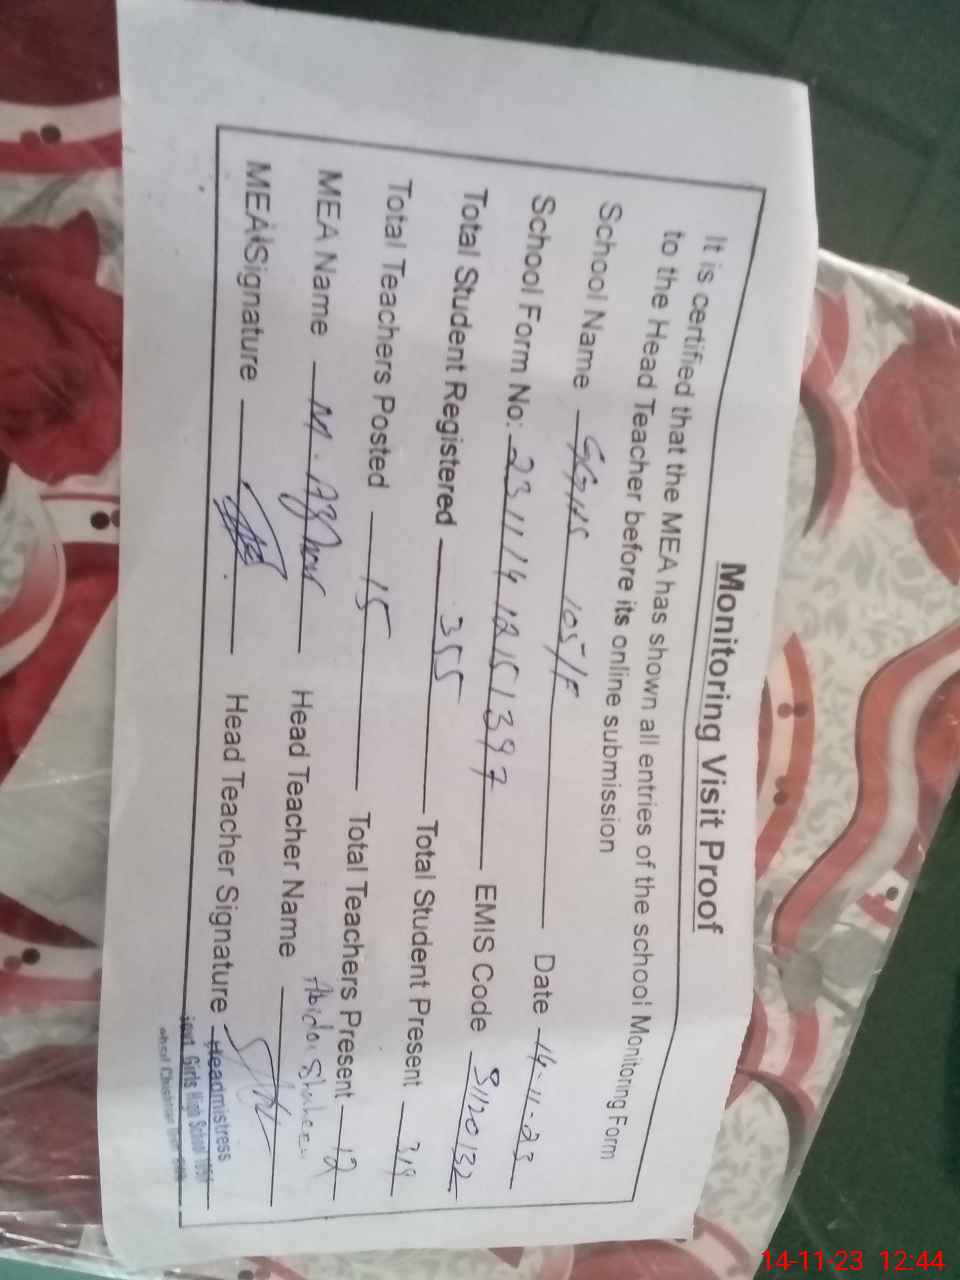 Monitoring Visit Proof
It is certified that the MEA has shown all entries of the school Monitoring Form
to the Head Teacher before its online submission
School Name GGHS 105/F Date 14-11-23
School Form No: 23111412151397 EMIS Code 31120132
Total Student Registered 355 Total Student Present 319
Total Teachers Posted 15 Total Teachers Present 12
MEA Name M. Azhar Head Teacher Name Abida
MEA Signature Head Teacher Signature
Headmistress
Govt Girls High School 105/F
14-11-23 12:44